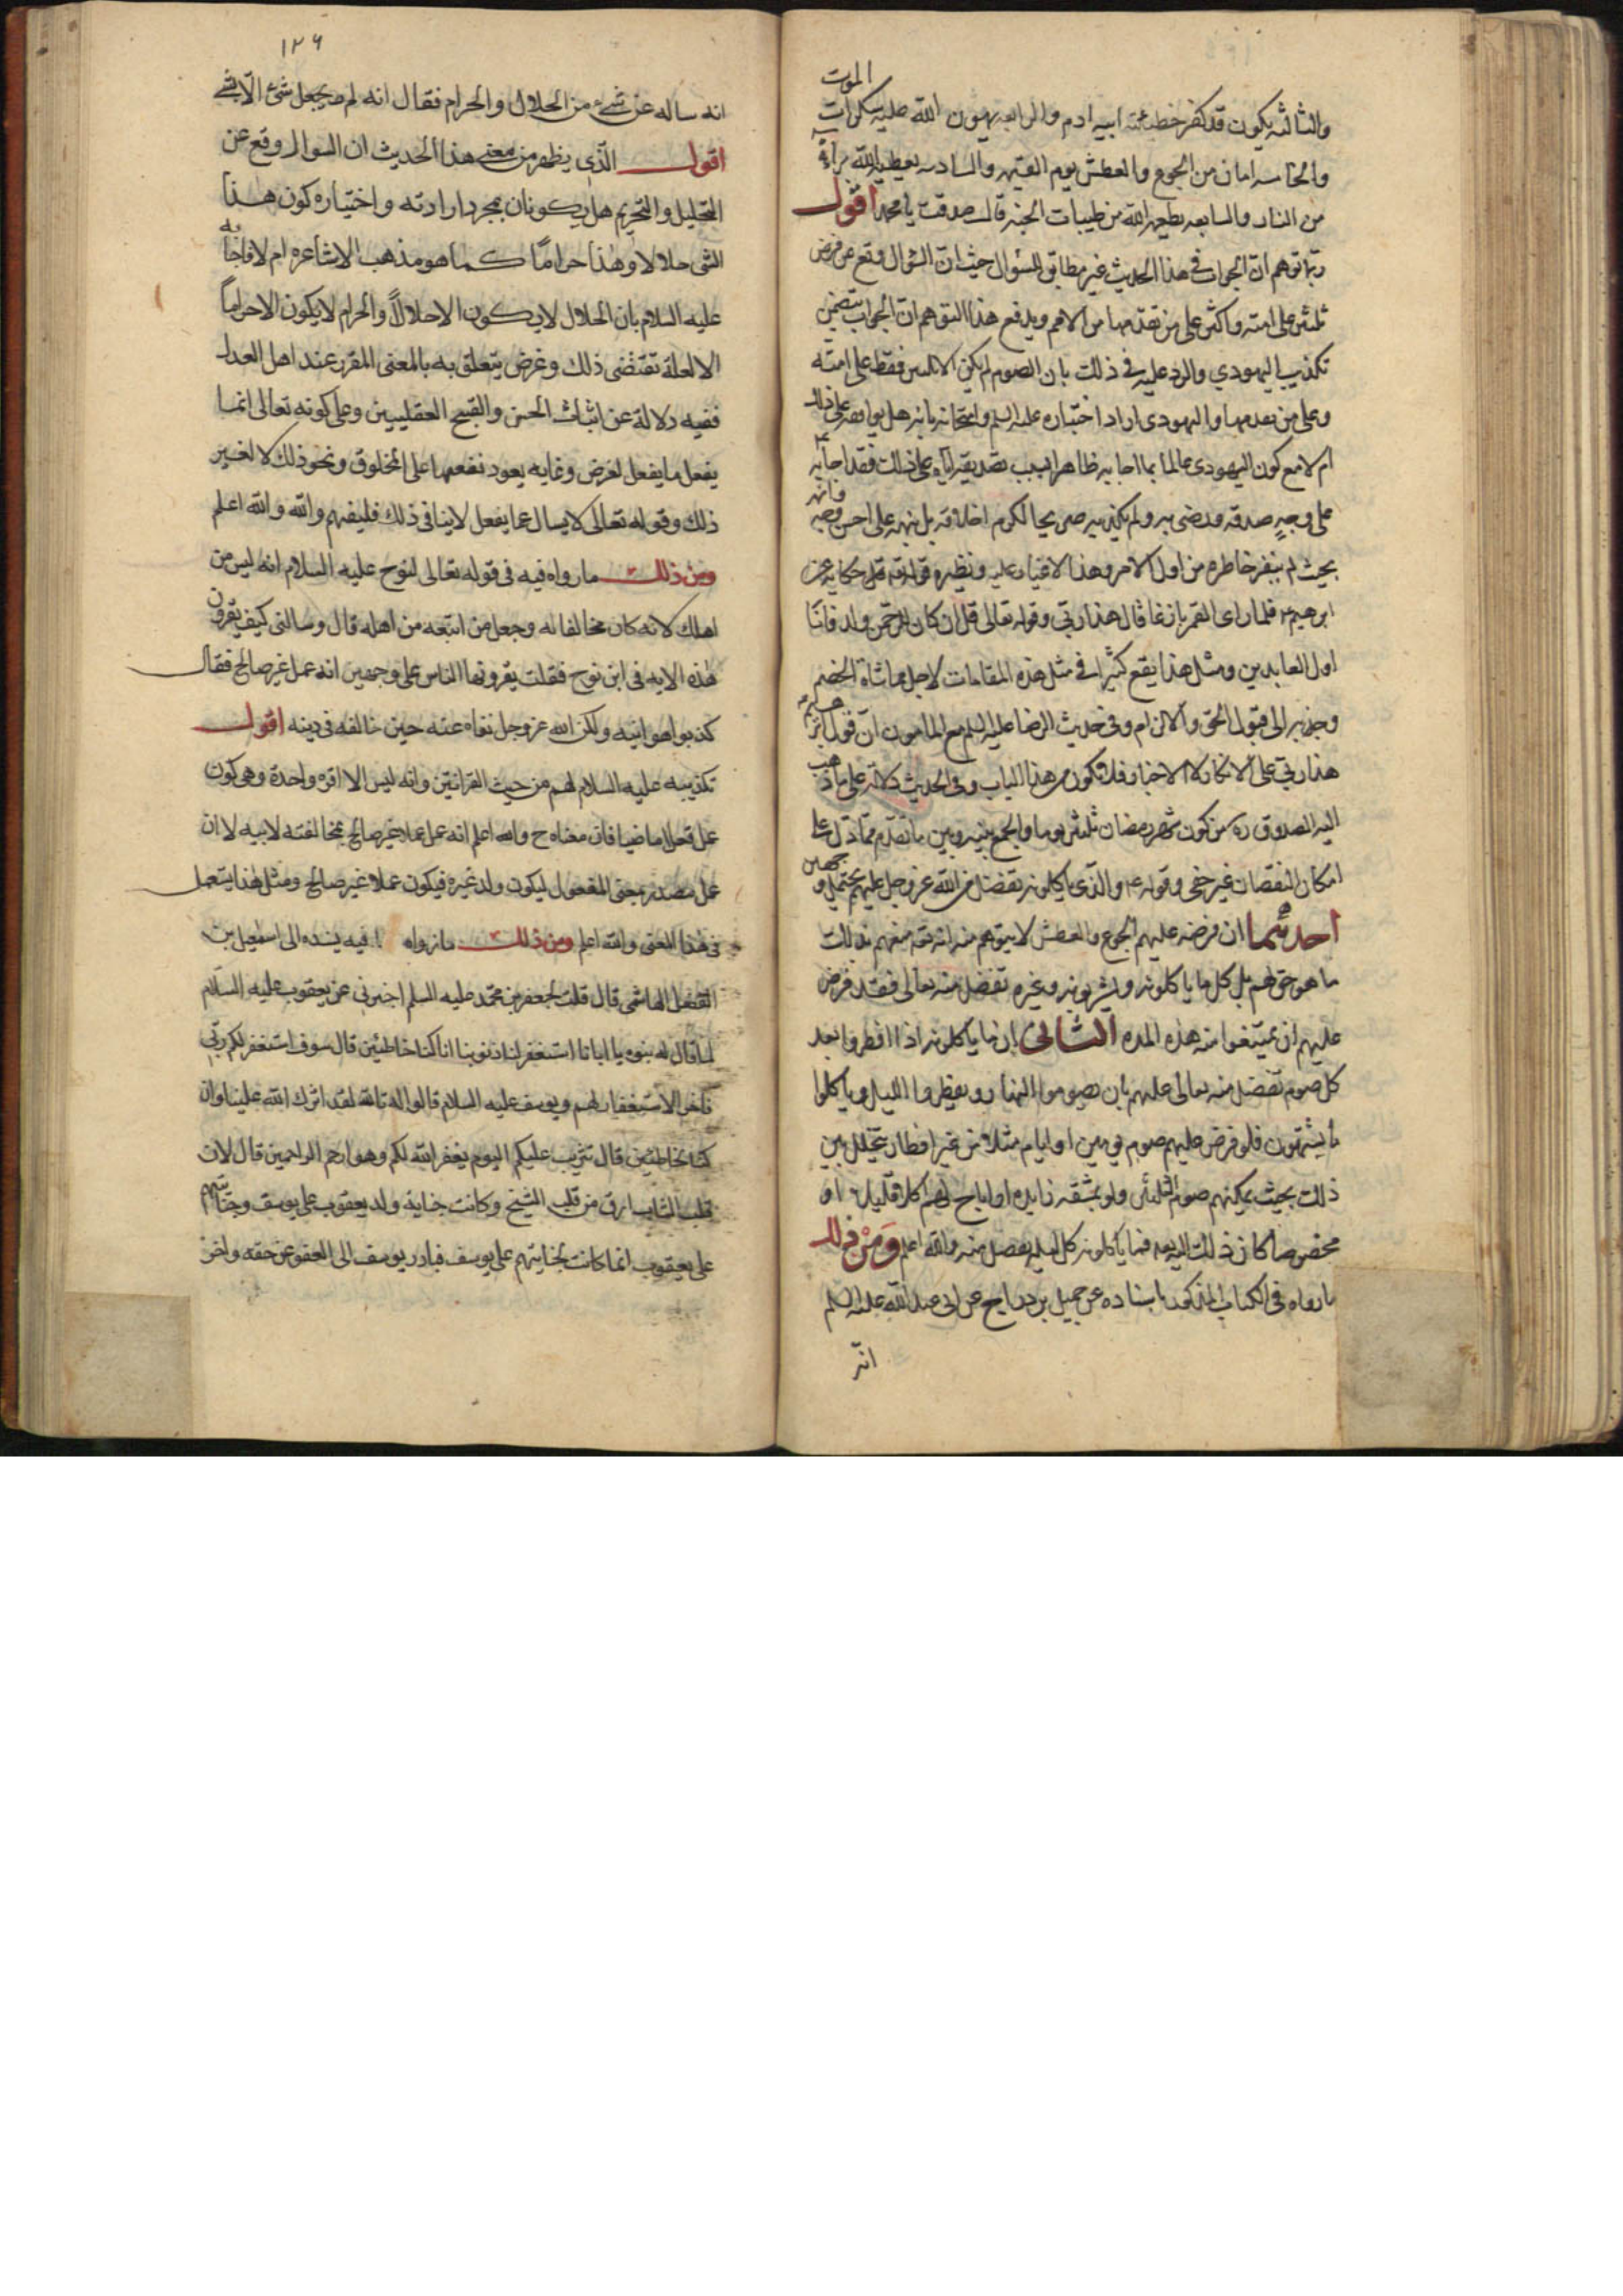 الموت
والثالثه يكون قد كفر خطيئته ابيه ادم والرابعه يهون الله عليه سكرات
والخامسه امان من الجوع والعطش يوم القيمه والسادسه يعطيه الله براءة
من النار والسابعه يطعمه الله من طيبات الجنه قال صدقت يا محمد اقول
ربما توهم ان الجواب فى هذا الحديث غير مطابق للسؤال حيث ان السؤال وقع عن فرض
ثلثين على امته واكثر على من تقدمها من الامم ويدفع هذا التوهم ان الجواب يتضمن
تكذيب اليهودي والرد عليه فى ذلك بان الصوم لم يكن الا ثلثين فقط على امته
وعلى من تقدمها واليهودى اراد اختباره عليه السلم وامتحانه بانه هل يوافقه على ذلك
ام لا مع كون اليهودى عالما بما اجابه ظاهرا فقد اجابه
على وجه صدقه ورضى به ولم يكذبه صريحا لكرم اخلاقه بل نبهه على احسن وجه فانه
بحيث لم ينفر خاطره من اول الامر وهذا ونظيره قوله تعالى حكاية عن
ابرهيم فلما راى القمر بازغا قال هذا ربى وقوله تعالى قل ان كان للرحمن ولد فانا
اول العابدين ومثل هذا يقع كثيرا فى مثل هذه المقامات لاجل مماشاة الخصم
وجذبه الى قبول الحق والالزام وفى حديث الرضا عليه السلم مع المامون ان قول ابرهيم
هذا ربى على الانكار لا الاخبار فلا تكون من هذا الباب وفى الحديث دلالة على ما ذهب
اليه الصدوق ره من كون شهر رمضان ثلثين يوما والجمع بينه وبين ما تقدم مما دل على
امكان النقصان غير خفى وقوله والذى ياكلونه تفضل من الله عز وجل عليهم يحتمل وجهين
احدهما ان فرضه عليهم الجوع والعطش لا يتوهم منه انه تعالى منعهم بذلك
ما هو حق لهم بل كل ما ياكلونه ويشربونه وغيره تفضل منه تعالى فقد فرض
عليهم ان يمتنعوا منه هذه المده الثانى ان ما ياكلونه اذا افطروا بعد
كل صوم تفضل منه تعالى عليهم بان يصوموا النهار ويفطروا الليل وياكلوا
ما يشتهون فلو فرض عليهم صوم يومين او ايام مثلا من غير افطار يتخلل بين
ذلك بحيث يمكنهم صوم الثلثين ولو بمشقه زايده او اباح لهم اكلا قليلا او
مخصوصا كان ذلك اليه فما ياكلونه كل ليله تفضل منه والله اعلم ومن ذلك
ما رواه فى الكتاب المذكور باسناده عن جميل بن دراج عن ابى عبد الله عليه السلم
انه
١٢٦
انه ساله عن شىء من الحلال والحرام فقال انه لم يجعل شئ الا لشئ
اقول الذى يظهر من معنى هذا الحديث ان السوال وقع عن
التحليل والتحريم هل يكونان بمجرد ارادته واختياره كون هذا
الشى حلالا وهذا حراما كما هو مذهب الاشاعره ام لا فاجابه
عليه السلام بان الحلال لا يكون الا حلالا والحرام لا يكون الا حراما
الا لعلة تقتضى ذلك وغرض يتعلق به بالمعنى المقرر عند اهل العدل
ففيه دلالة عن اثبات الحسن والقبح العقليين وعلى كونه تعالى انما
يفعل ما يفعل لغرض وغايه يعود نفعها على المخلوق ونحو ذلك لا لغير
ذلك وقوله تعالى لا يسال عما يفعل لا ينافى ذلك فليفهم والله والله اعلم
ومن ذلك ما رواه فيه فى قوله تعالى لنوح عليه السلام انه ليس من
اهلك لانه كان مخالفا له وجعل من اتبعه من اهله قال وسالنى كيف يقرون
هذه الايه فى ابن نوح فقلت يقرونها الناس على وجهين انه عمل غير صالح فقال
كذبوا هو ابنه ولكن الله عز وجل نفاه عنه حين خالفه فى دينه اقول
تكذيبه عليه السلام لهم من حيث القرائتين وانه ليس الا اقره واحدة وهى كون
عمل فعلا ماضيا فان معناه ح والله اعلم انه عمل عملا غير صالح بمخالفته لابيه لا ان
عمل مصدر بمعنى المفعول ليكون ولد غيره فيكون عملا غير صالح ومثل هذا يستعمل
فى هذا المعنى والله اعلم ومن ذلك ما رواه فيه يسنده الى اسمعيل بن
الفضل الهاشمى قال قلت لجعفر بن محمد عليه السلم اخبرنى عن يعقوب عليه السلام
لما قال له بنوه يا ابانا استغفر لنا ذنوبنا انا كنا خاطئين قال سوف استغفر لكم ربى
فاخر الاستغفار لهم ويوسف عليه السلام قالوا له تالله لقد اثرك الله علينا وان
كنا لخاطئين قال تثريب عليكم اليوم يغفر الله لكم وهو ارحم الراحمين قال لان
قلب الشاب ارق من قلب الشيخ وكانت جناية ولد يعقوب على يوسف وجنايتهم
على يعقوب انما كانت بجنايتهم على يوسف فبادر يوسف الى العفو عن حقه واخر